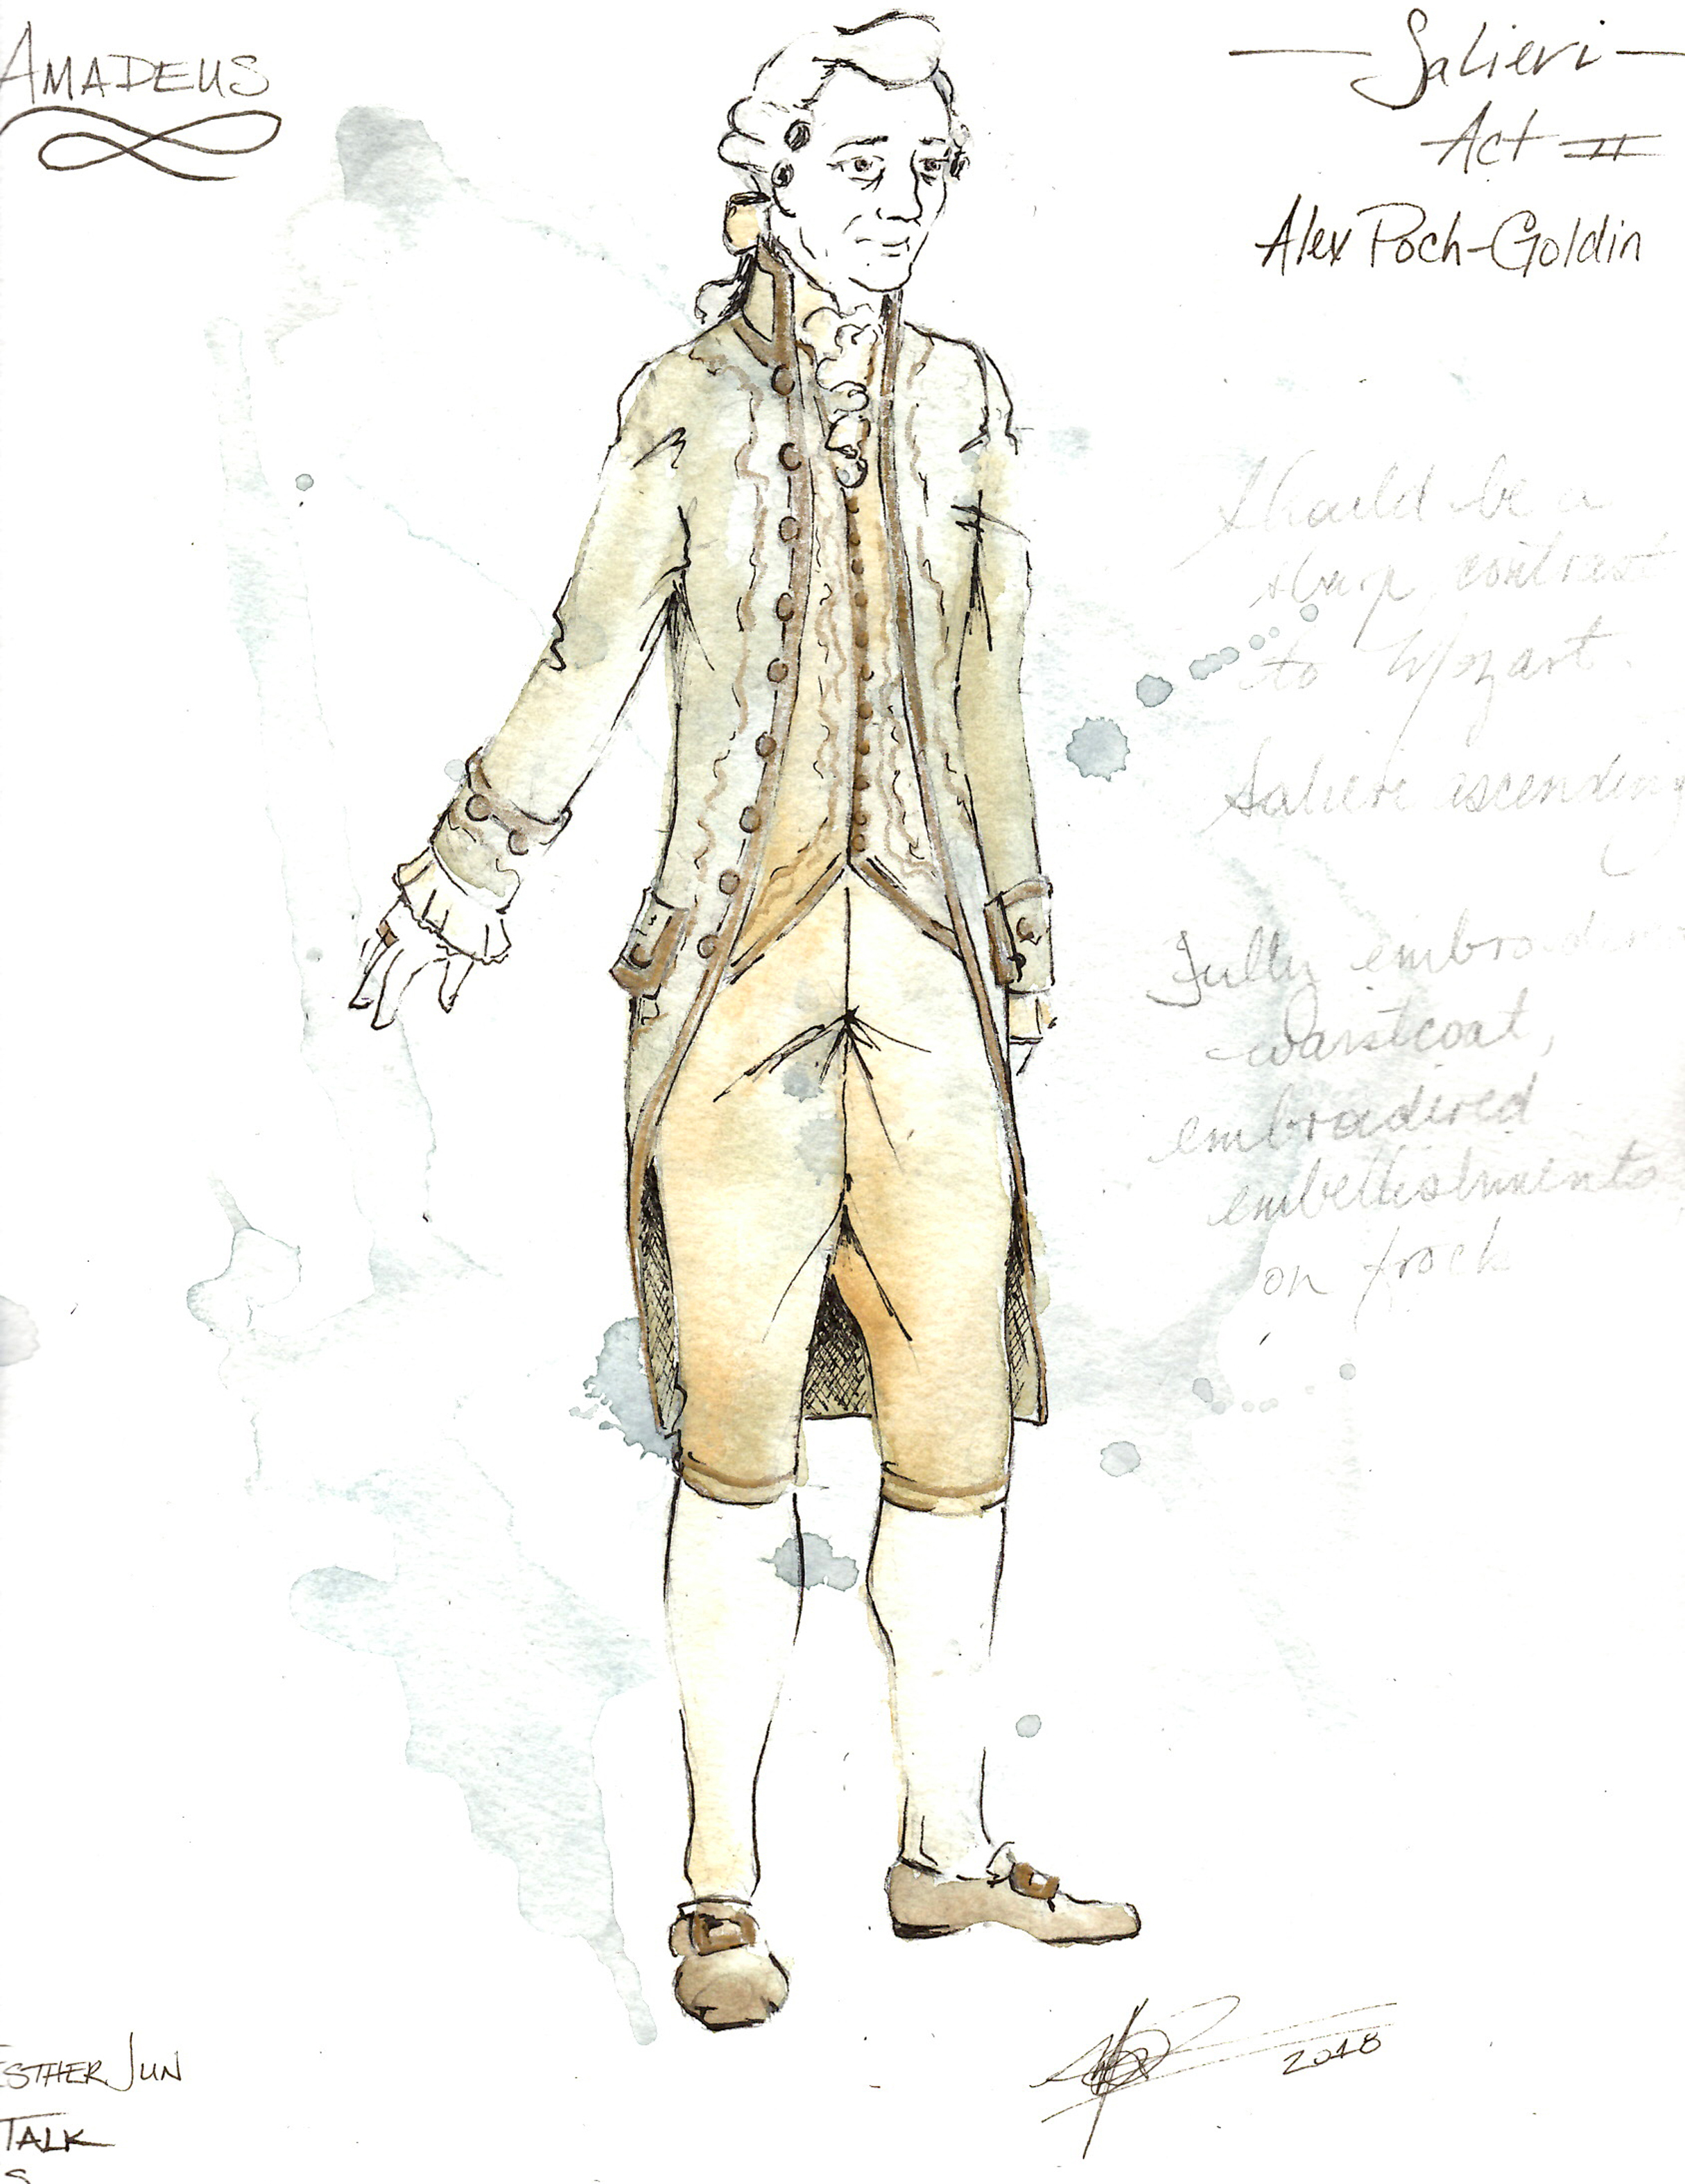 AMADEUS
Salieri
Act II
Alex Poch-Goldin
Should be a
sharp contrast
to Mozart.
Salieri ascending
Fully embroidere
waistcoat,
embroidired
embellishments
on frock
ESTHER JUN
TALK
S
2018